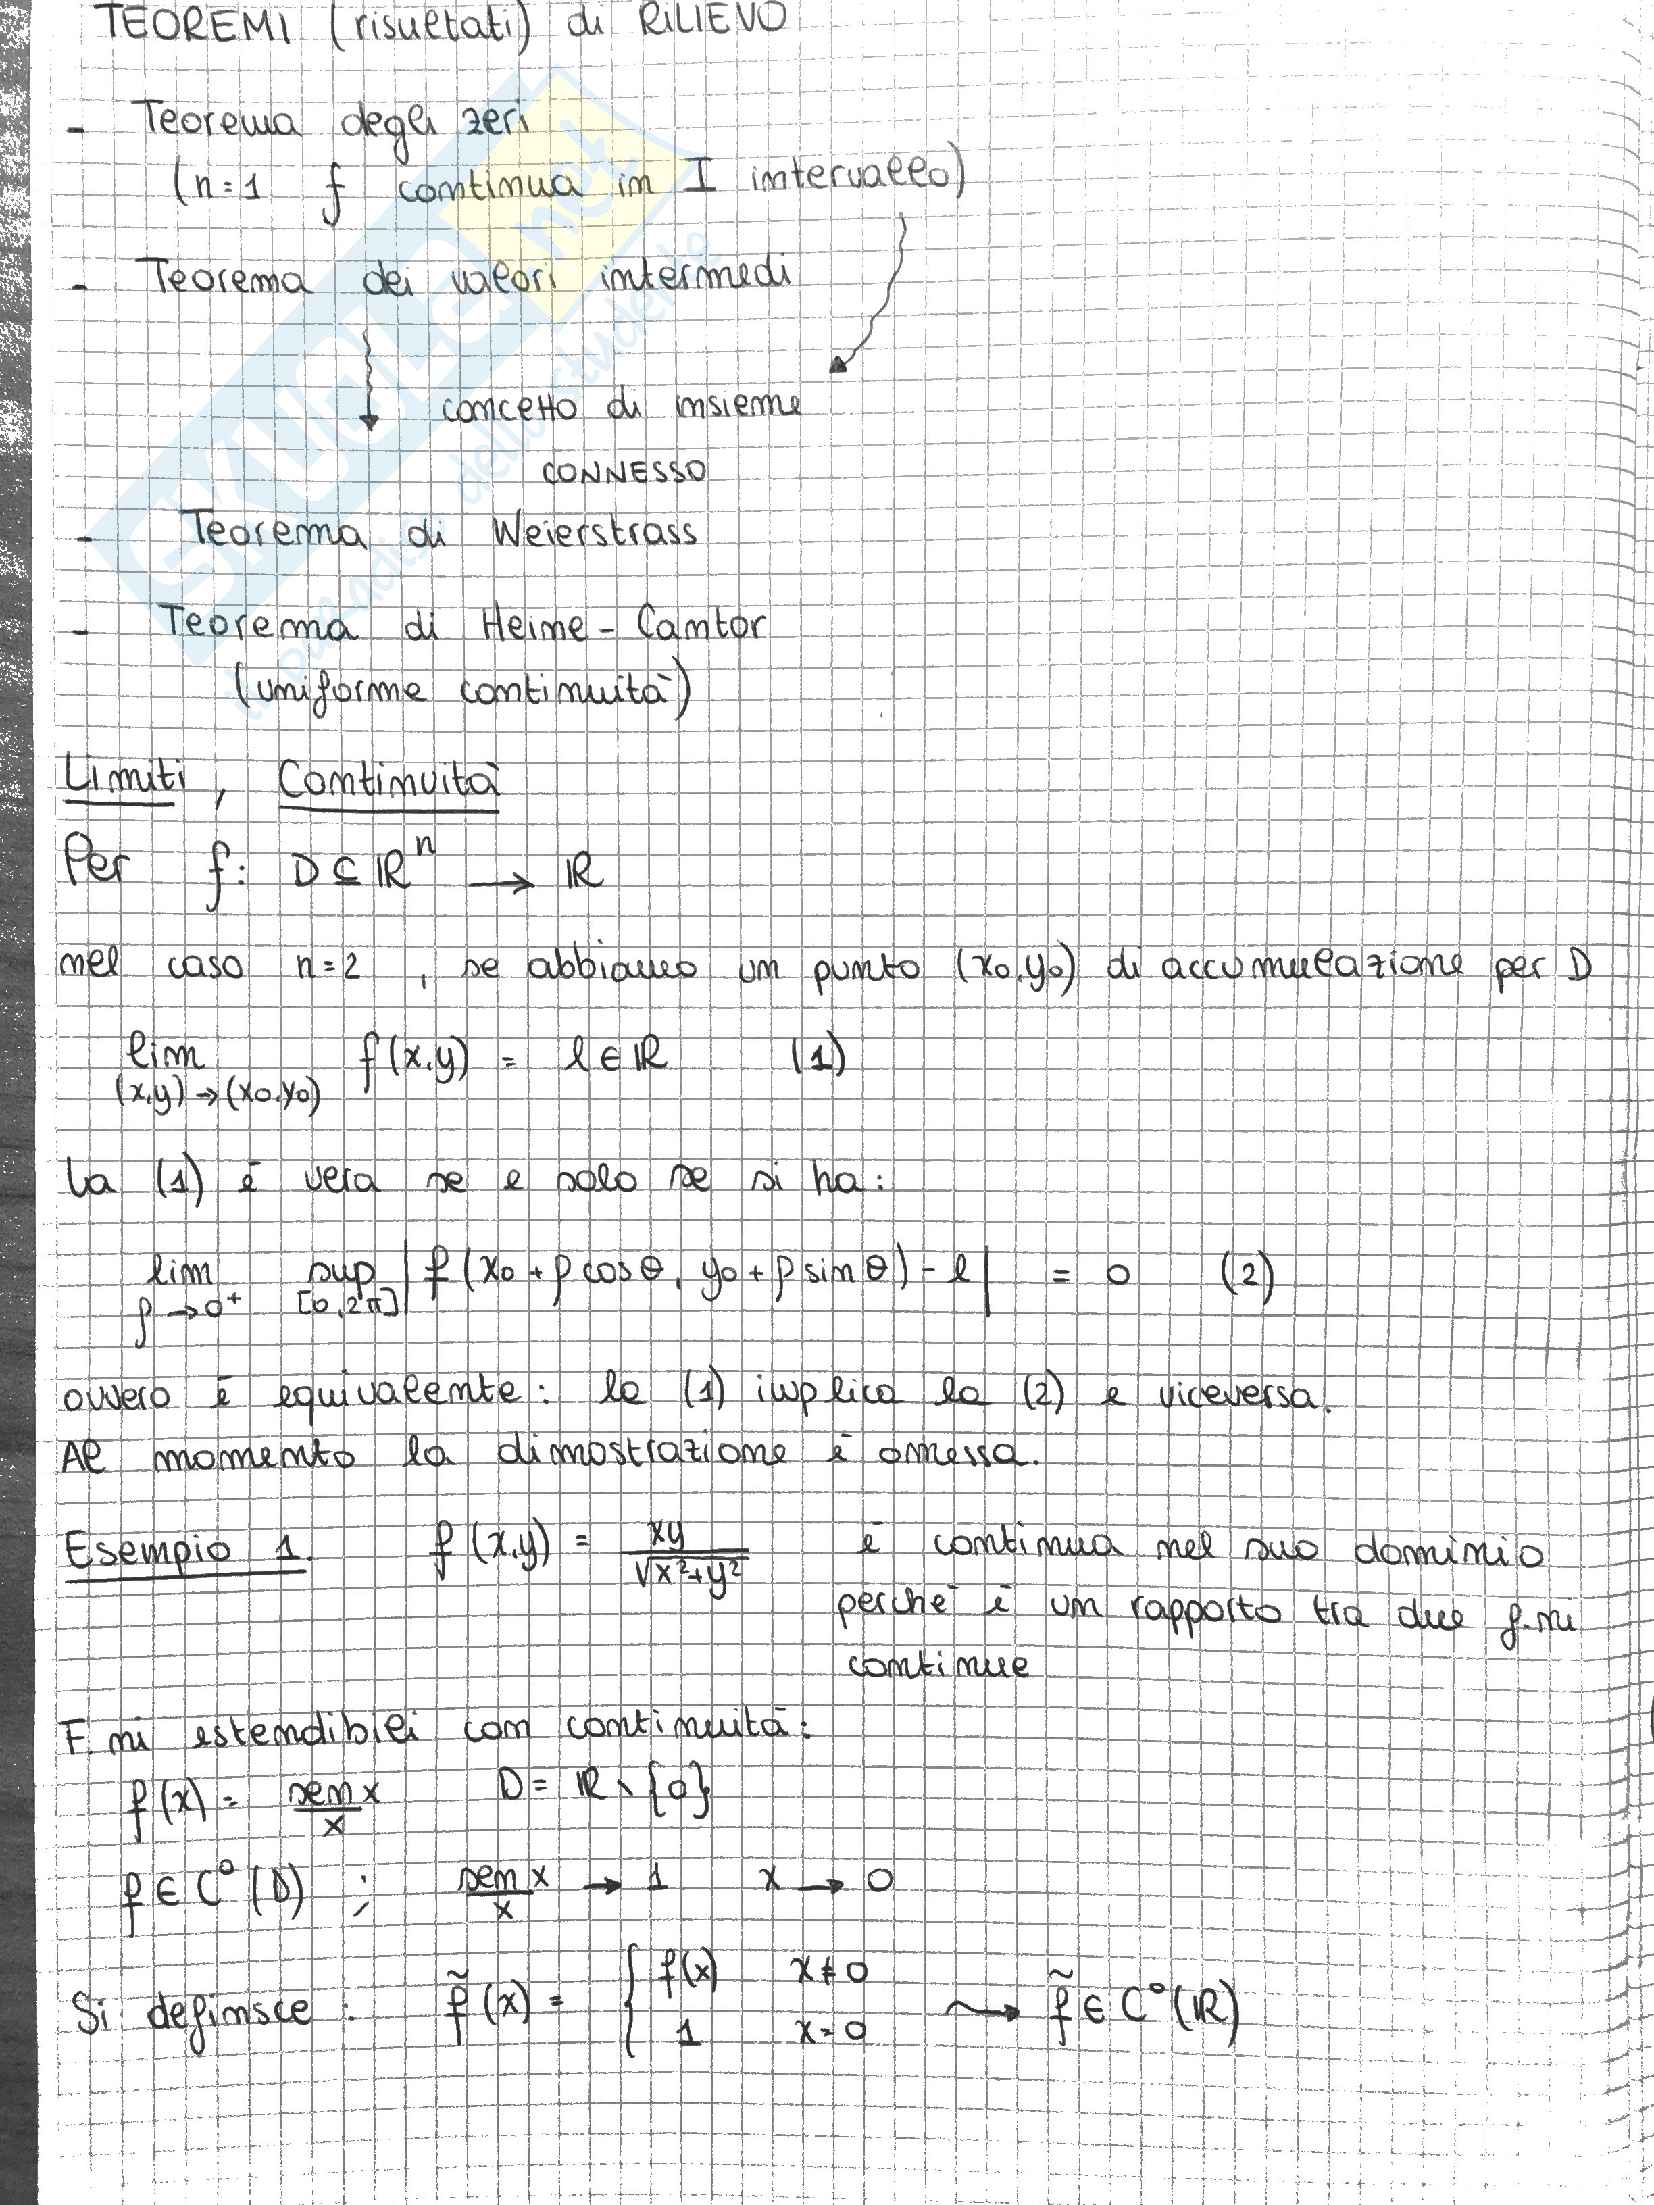 TEOREMI (risultati) di RILIEVO
- Teorema degli zeri
(n=1 f continua in I intervallo)
- Teorema dei valori intermedi
concetto di insieme
CONNESSO
- Teorema di Weierstrass
- Teorema di Heine-Cantor
(uniforme continuità)
Limiti, Continuità
Per f: D ⊆ ℝⁿ → ℝ
nel caso n=2, se abbiamo un punto (x₀,y₀) di accumulazione per D
lim f(x,y) = l ∈ ℝ (1)
(x,y)→(x₀,y₀)
La (1) è vera se e solo se si ha:
lim sup | f(x₀+ρcosθ, y₀+ρsinθ) - l | = 0 (2)
ρ→0⁺ [0,2π]
ovvero è equivalente: la (1) implica la (2) e viceversa.
Al momento la dimostrazione è omessa.
Esempio 1. f(x,y) = xy / √x²+y² è continua nel suo dominio
perché è un rapporto tra due f.ni
continue
F.ni estendibili con continuità:
f(x) = sen x / x D = ℝ \ {0}
f ∈ C⁰(D) ; sen x / x → 1 x → 0
Si definsce: f̃(x) = { f(x) x≠0
1 x=0 ⇝ f̃ ∈ C⁰(ℝ)
SKUOLA.net
il paradiso dello studente